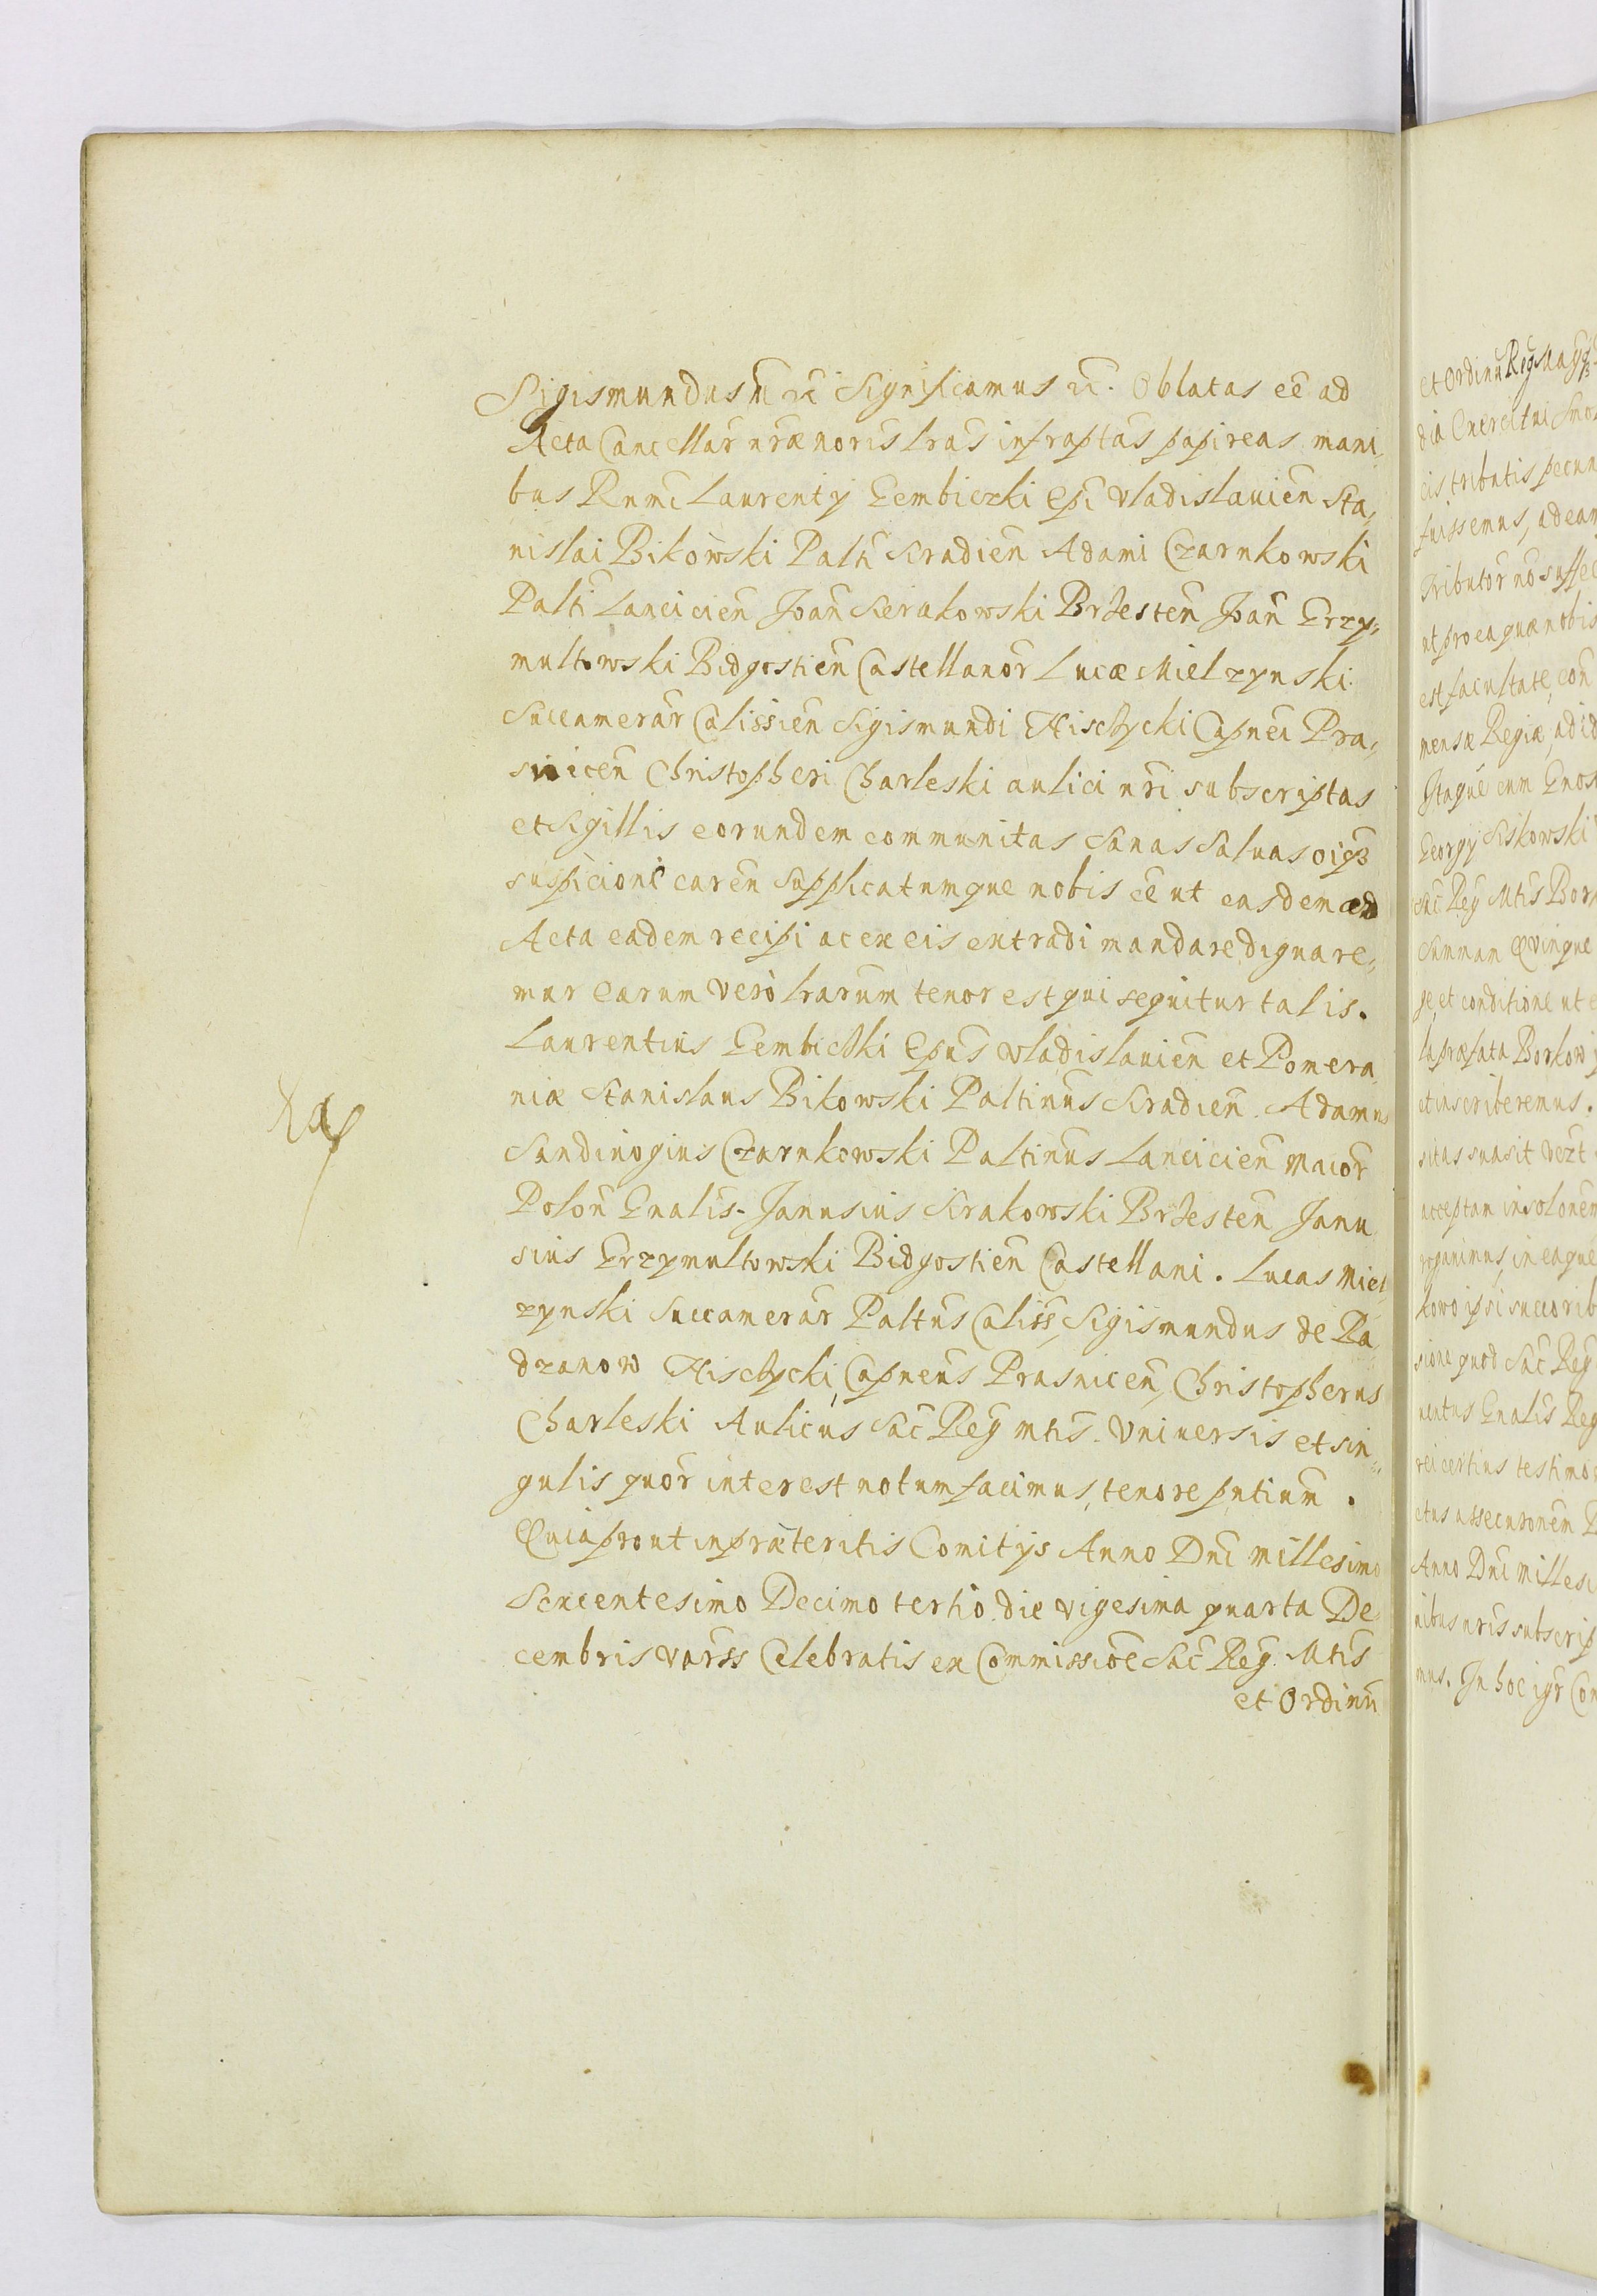 Sigismundus m̃ rc̃ Significamus rc̃. Oblatas eẽ ad
Acta Cancellar̃ nr̃æ noris lras̃ infraptas̃ papireas mani„
bus Rnmi Laurentÿ Gembiczki Epĩ Vladislauień Sta„
nislai Bikowski Paltĩ Siradień Adami Czarnkowski
Paltĩ Lancicień Joañ Sierakowski Brzesteń Joañ Grzy„
multowski Bidgostień Castellanor̃ Lucæ Mielzynski
Succamerar̃ Calissień Sigismundi Nisczycki Capnei Pra„
sniceń Christopheri Charleski aulici nrĩ subscriptas
et Sigillis eorundem communitas Sanas Saluas oiq3
suspicione careñ Supplicatumque nobis eẽ ut easdem ad
Acta eadem recipi ac ex eis extradi mandare dignare„
mur Earum Verò lrarum tenor est qui sequitur talis.
Laurentius Gembiczki Epus̃ Vladislauień et Pomera„
niæ Stanislaus Bikowski Paltinus̃ Siradień. Adamus
Sandiuogius Czarnkowski Paltinus̃ Lancicień Maior̃
Poloñ Gnalis̃. Janusius Sirakowski Brzesteń Janu„
sius Grzymultowski Bidgostień Castellani. Lucas Miel„
zynski Succamerar̃ Paltus̃ Caliss̃, Sigismundus de Ra„
dzanow Nisczycki, Capneus̃ Prasniceñ, Christopherus
Charleski Aulicus Sac̃ Reg̃ mtis̃. Vniuersis et sin„
gulis quor̃ interest notum facimus, tenore pntium̃.
Quia prout in præteritis Comitÿs Anno Dnĩ millesimo
Sexcentesimo Decimo tertio die vigesima quarta De„
cembris Varss̃ Celebratis ex Commissioẽ Sac̃ Reg̃. Mtis̃
et Ordinũ
et Ordinũ Reg
dia Exercitui Suo
eis tributis pecun
fuissemus, ad eam
Tributor̃ nõ suffec
ut pro ea quæ nobis
est facultate, con
mensæ Regiæ, ad id
Itaque cum Gnos
Georgÿ Siskowski
Sac̃ Reg̃ Mtis̃ Bor
Summam Quinque
ge, et conditione ut e
la præfata Borkow
et inscriberemus.
sitas suasit
acceptam in solonem
organimus, in eaque
kowo ipsi succorib
sione quod Sac̃ Reg̃
uentus Gnalis̃ Reg
rei certius testimo
ctus assecuronem̃
Anno Dnĩ Millesi
nibus nris̃ subscrip
mus. In hoc igr̃ Con